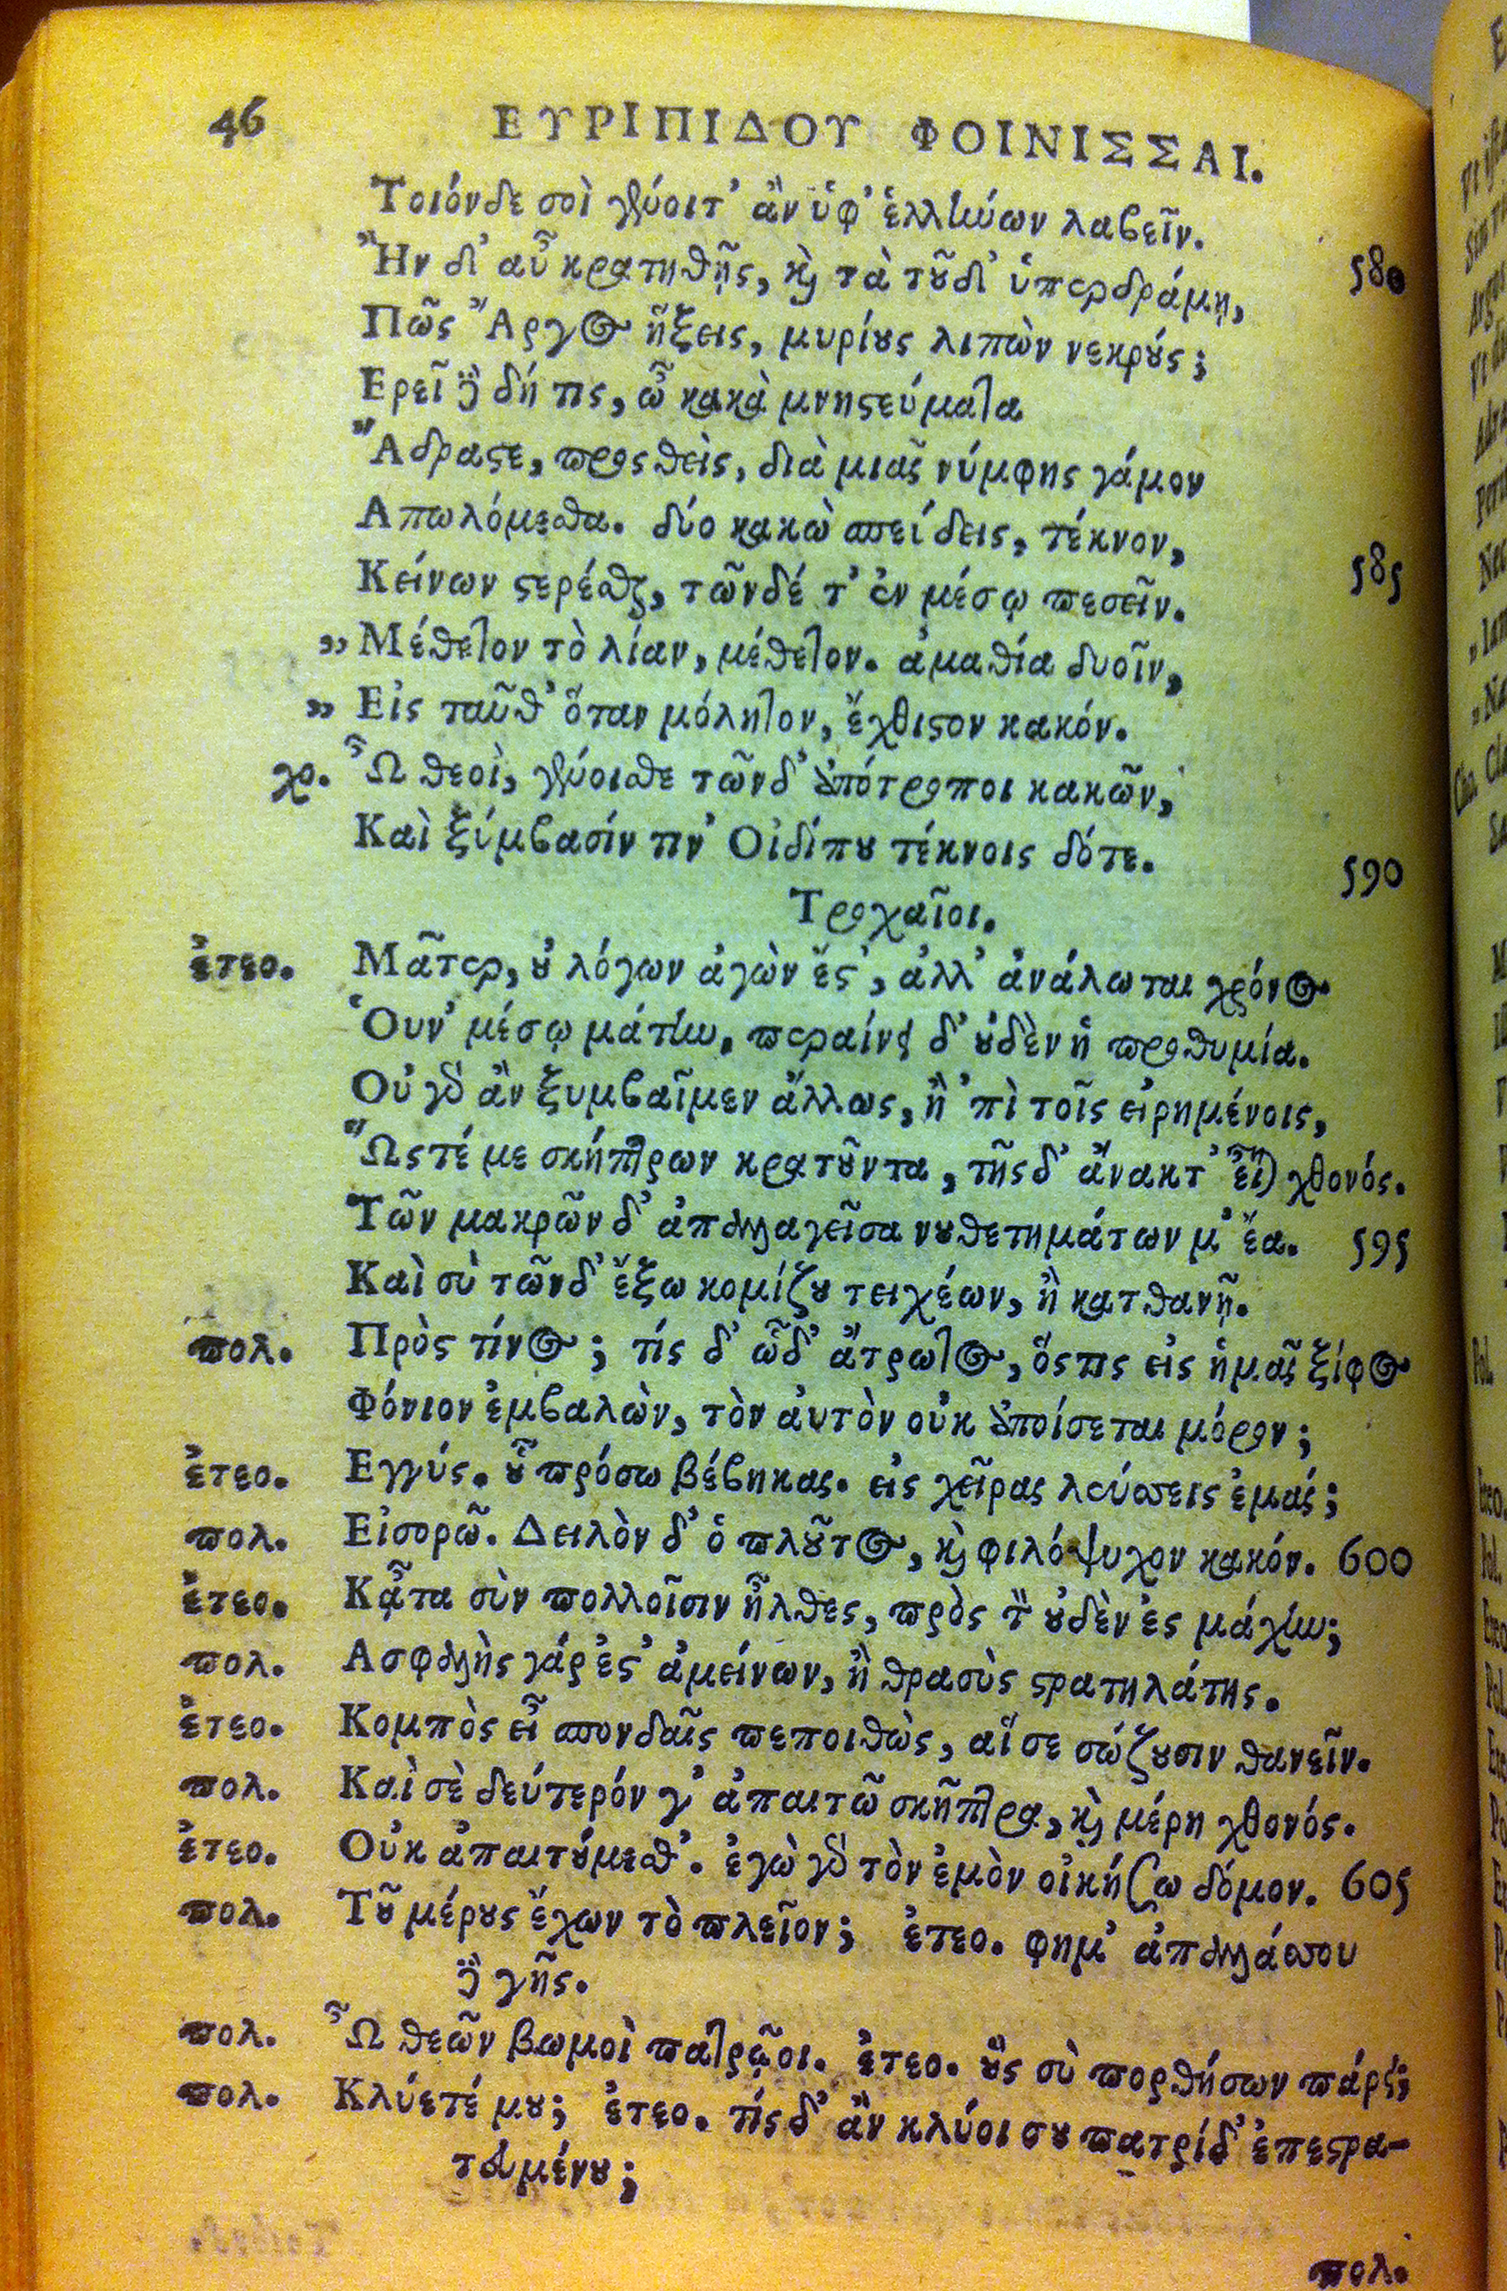 46 ΕΥΡΙΠΙΔΟΥ ΦΟΙΝΙΣΣΑΙ.
Τοιόνδε σοὶ γένοιτ' ἂν ὑφ' ἑλλήνων λαβεῖν.
Ἢν δ' αὖ κρατηθῇς, καὶ τὰ τοῦδ' ὑπερδράμῃ, 580
Πῶς Ἄργος ἥξεις, μυρίους λιπὼν νεκρούς;
Ερεῖ δὲ δή τις, ὦ κακὰ μνηστεύματα
Ἄδραστε, προσθεὶς, διὰ μιᾶς νύμφης γάμον
Απωλόμεσθα. δύο κακὼ σπεύδεις, τέκνον,
Κείνων στερέσθαι, τῶνδέ τ' ἐν μέσῳ πεσεῖν. 585
„ Μέθετον τὸ λίαν, μέθετον. ἀμαθία δυοῖν,
„ Εἰς ταῦθ' ὅταν μόλητον, ἔχθιστον κακόν.
χο. Ὦ θεοὶ, γένοισθε τῶνδ' ἀπότροποι κακῶν,
Καὶ ξύμβασίν τιν' Οἰδίπου τέκνοις δότε. 590
Τροχαῖοι.
ἐτεο. Μᾶτερ, οὐ λόγων ἀγὼν ἔστ', ἀλλ' ἀνάλωται χρόνος
Ὁυν' μέσῳ μάτην, περαίνει δ' οὐδὲν ἡ προθυμία.
Οὐ γὰρ ἂν ξυμβαῖμεν ἄλλως, ἢ 'πὶ τοῖς εἰρημένοις,
Ὥστέ με σκήπτρων κρατοῦντα, τῆσδ' ἄνακτ' εἶναι χθονός.
Τῶν μακρῶν δ' ἀπαλλαγεῖσα νουθετημάτων μ' ἔα. 595
Καὶ σὺ τῶνδ' ἔξω κομίζου τειχέων, ἢ κατθανῇ.
πολ. Πρὸς τίνος; τίς δ' ὧδ' ἄτρωτος, ὅστις εἰς ἡμᾶς ξίφος
Φόνιον ἐμβαλὼν, τὸν ἀυτὸν οὐκ ἀποίσεται μόρον;
ἐτεο. Εγγύς. οὐ πρόσω βέβηκας. εἰς χεῖρας λεύσσεις ἐμάς;
πολ. Εἰσορῶ. Δειλὸν δ' ὁ πλοῦτος, καὶ φιλόψυχον κακόν. 600
ἐτεο. Κᾆτα σὺν πολλοῖσιν ἦλθες, πρὸς τὸν οὐδὲν ἐς μάχην;
πολ. Ασφαλὴς γάρ ἐστ' ἀμείνων, ἢ θρασὺς στρατηλάτης.
ἐτεο. Κομπὸς εἶ σπονδαῖς πεποιθὼς, αἵ σε σώζουσιν θανεῖν.
πολ. Καὶ σὲ δεύτερόν γ' ἀπαιτῶ σκῆπτρα, καὶ μέρη χθονός.
ἐτεο. Οὐκ ἀπαιτούμεσθ'. ἐγὼ γὰρ τὸν ἐμὸν οἰκήσω δόμον. 605
πολ. Τοῦ μέρους ἔχων τὸ πλεῖον; ἐτεο. φημ' ἀπαλλάσσου
δὲ γῆς.
πολ. Ὦ θεῶν βωμοὶ πατρῷοι. ἐτεο. οὓς σὺ πορθήσων πάρει;
πολ. Κλύετέ μου; ἐτεο. τίς δ' ἂν κλύοι σου πατρίδ' ἐπεστρα-
τευμένου;
πολ.